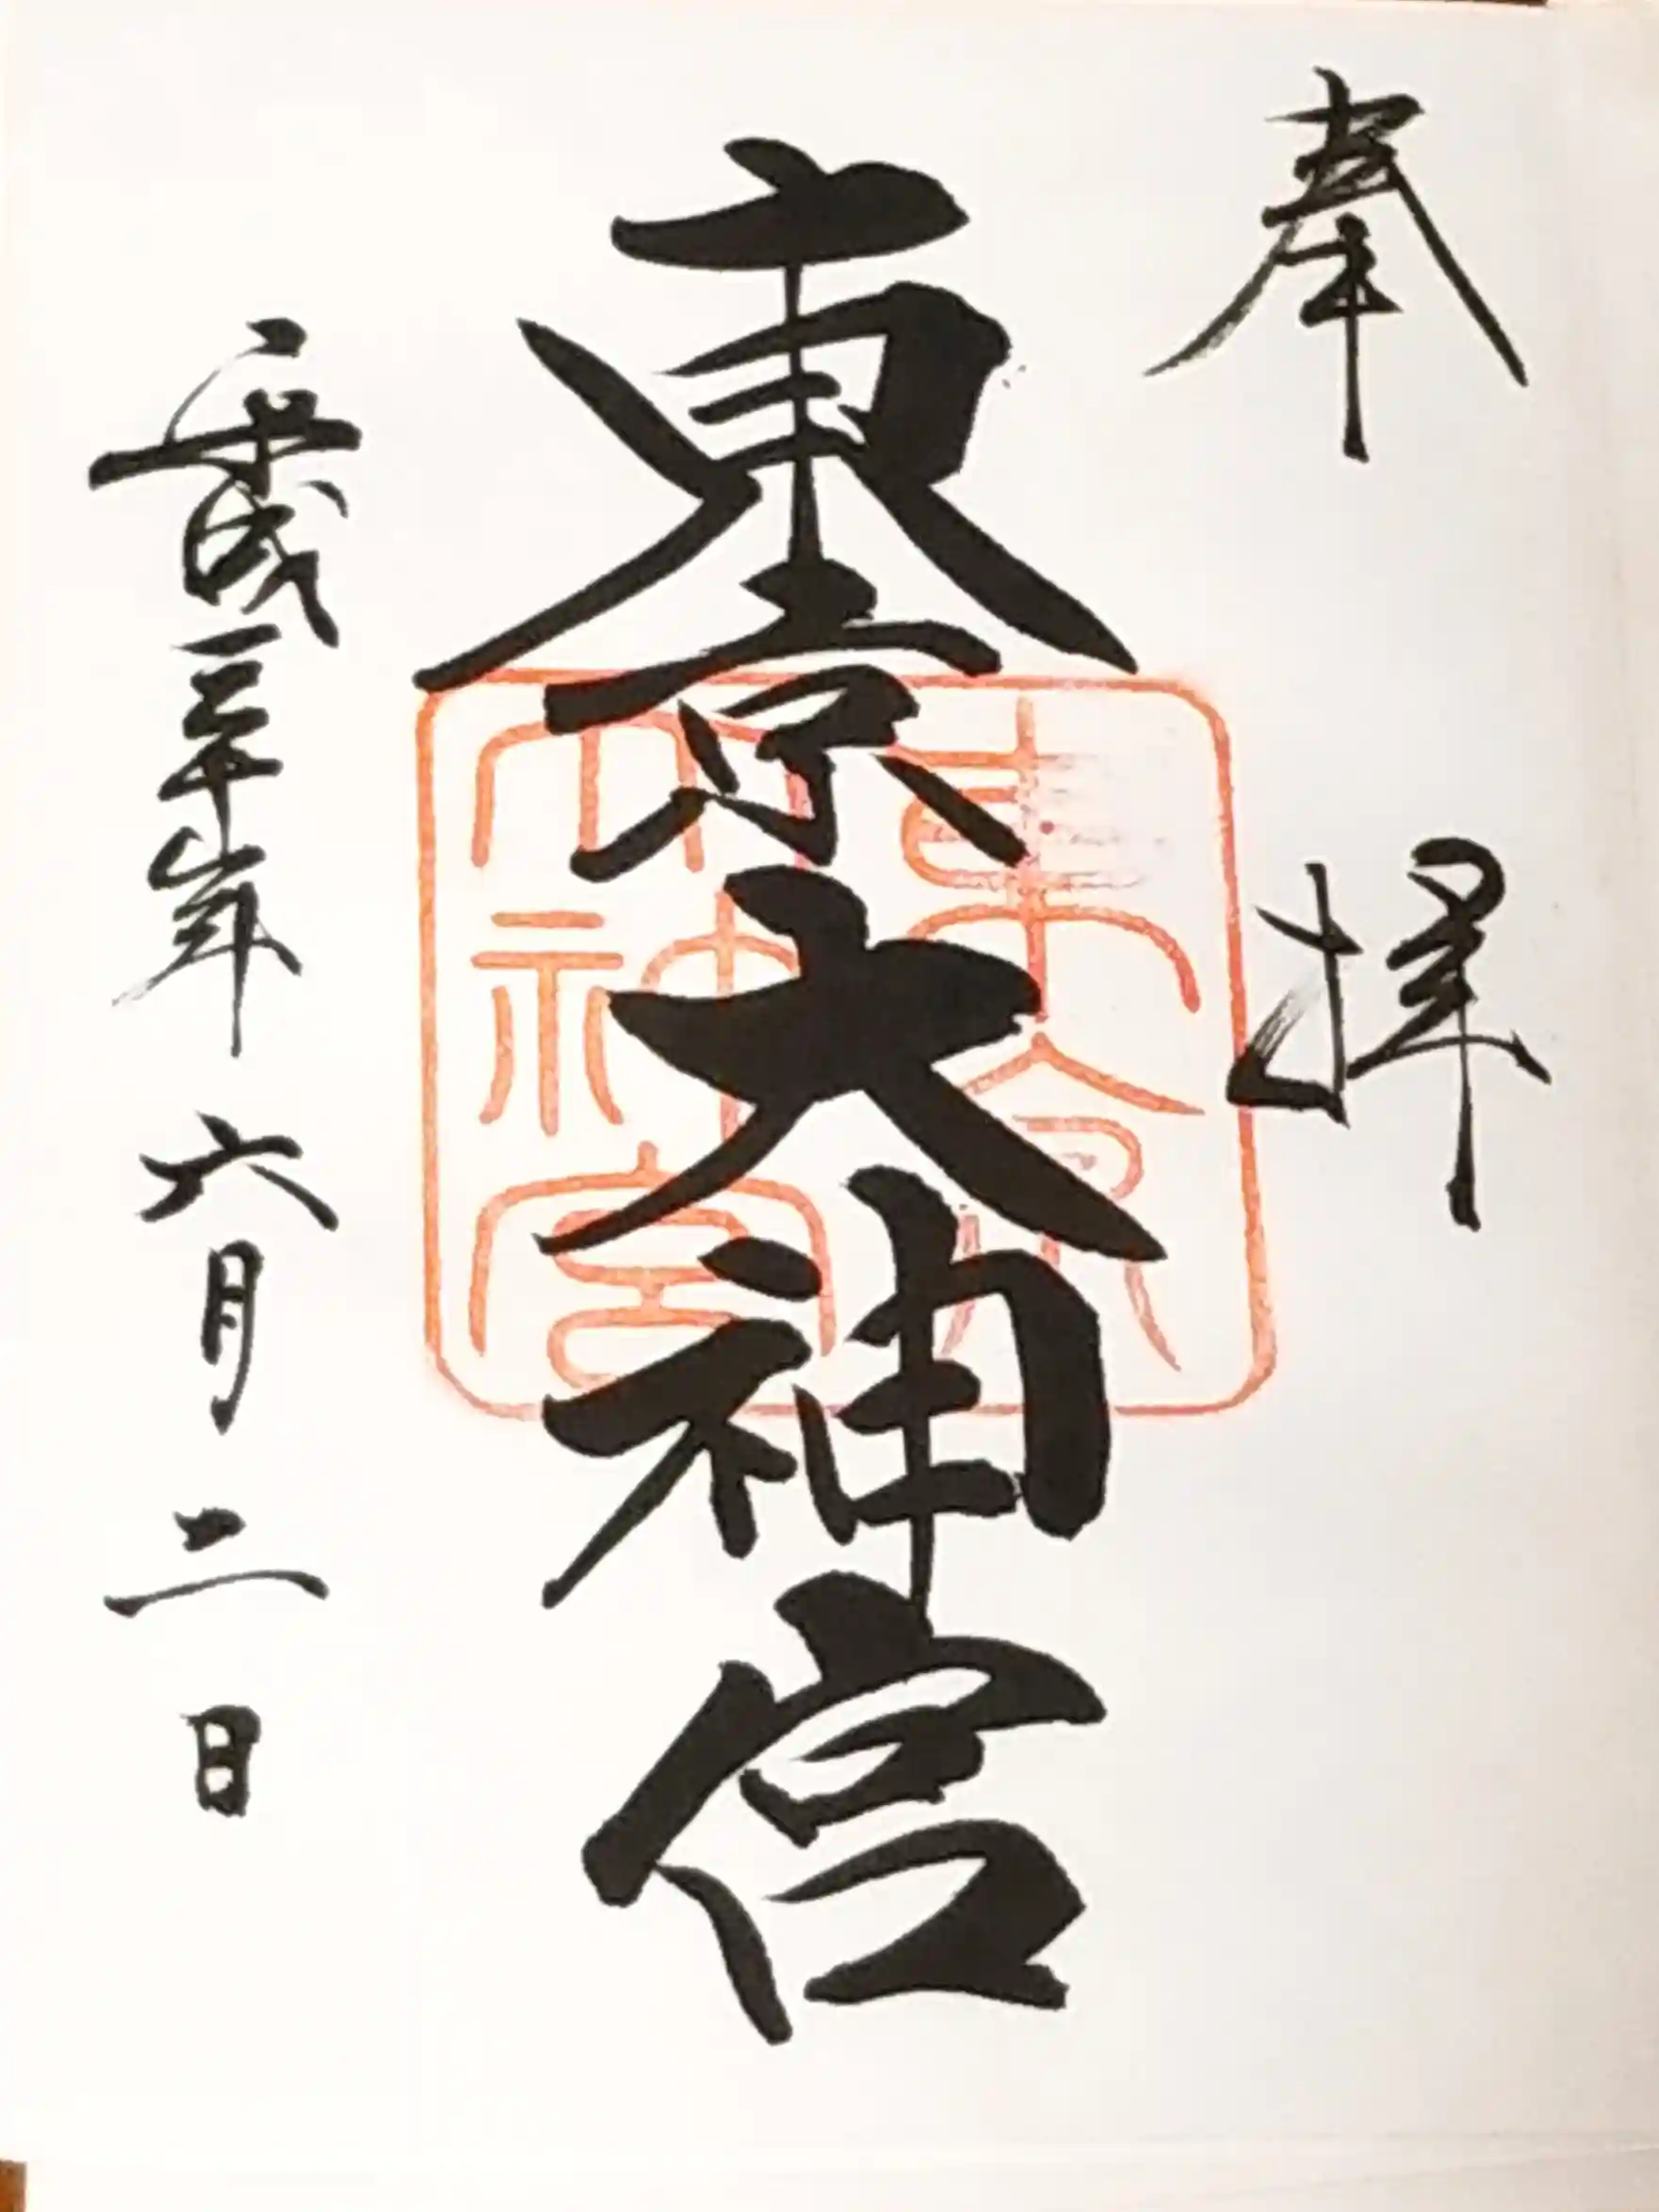 奉拝
東京大神宮
平成三十年六月二日
東京大神宮